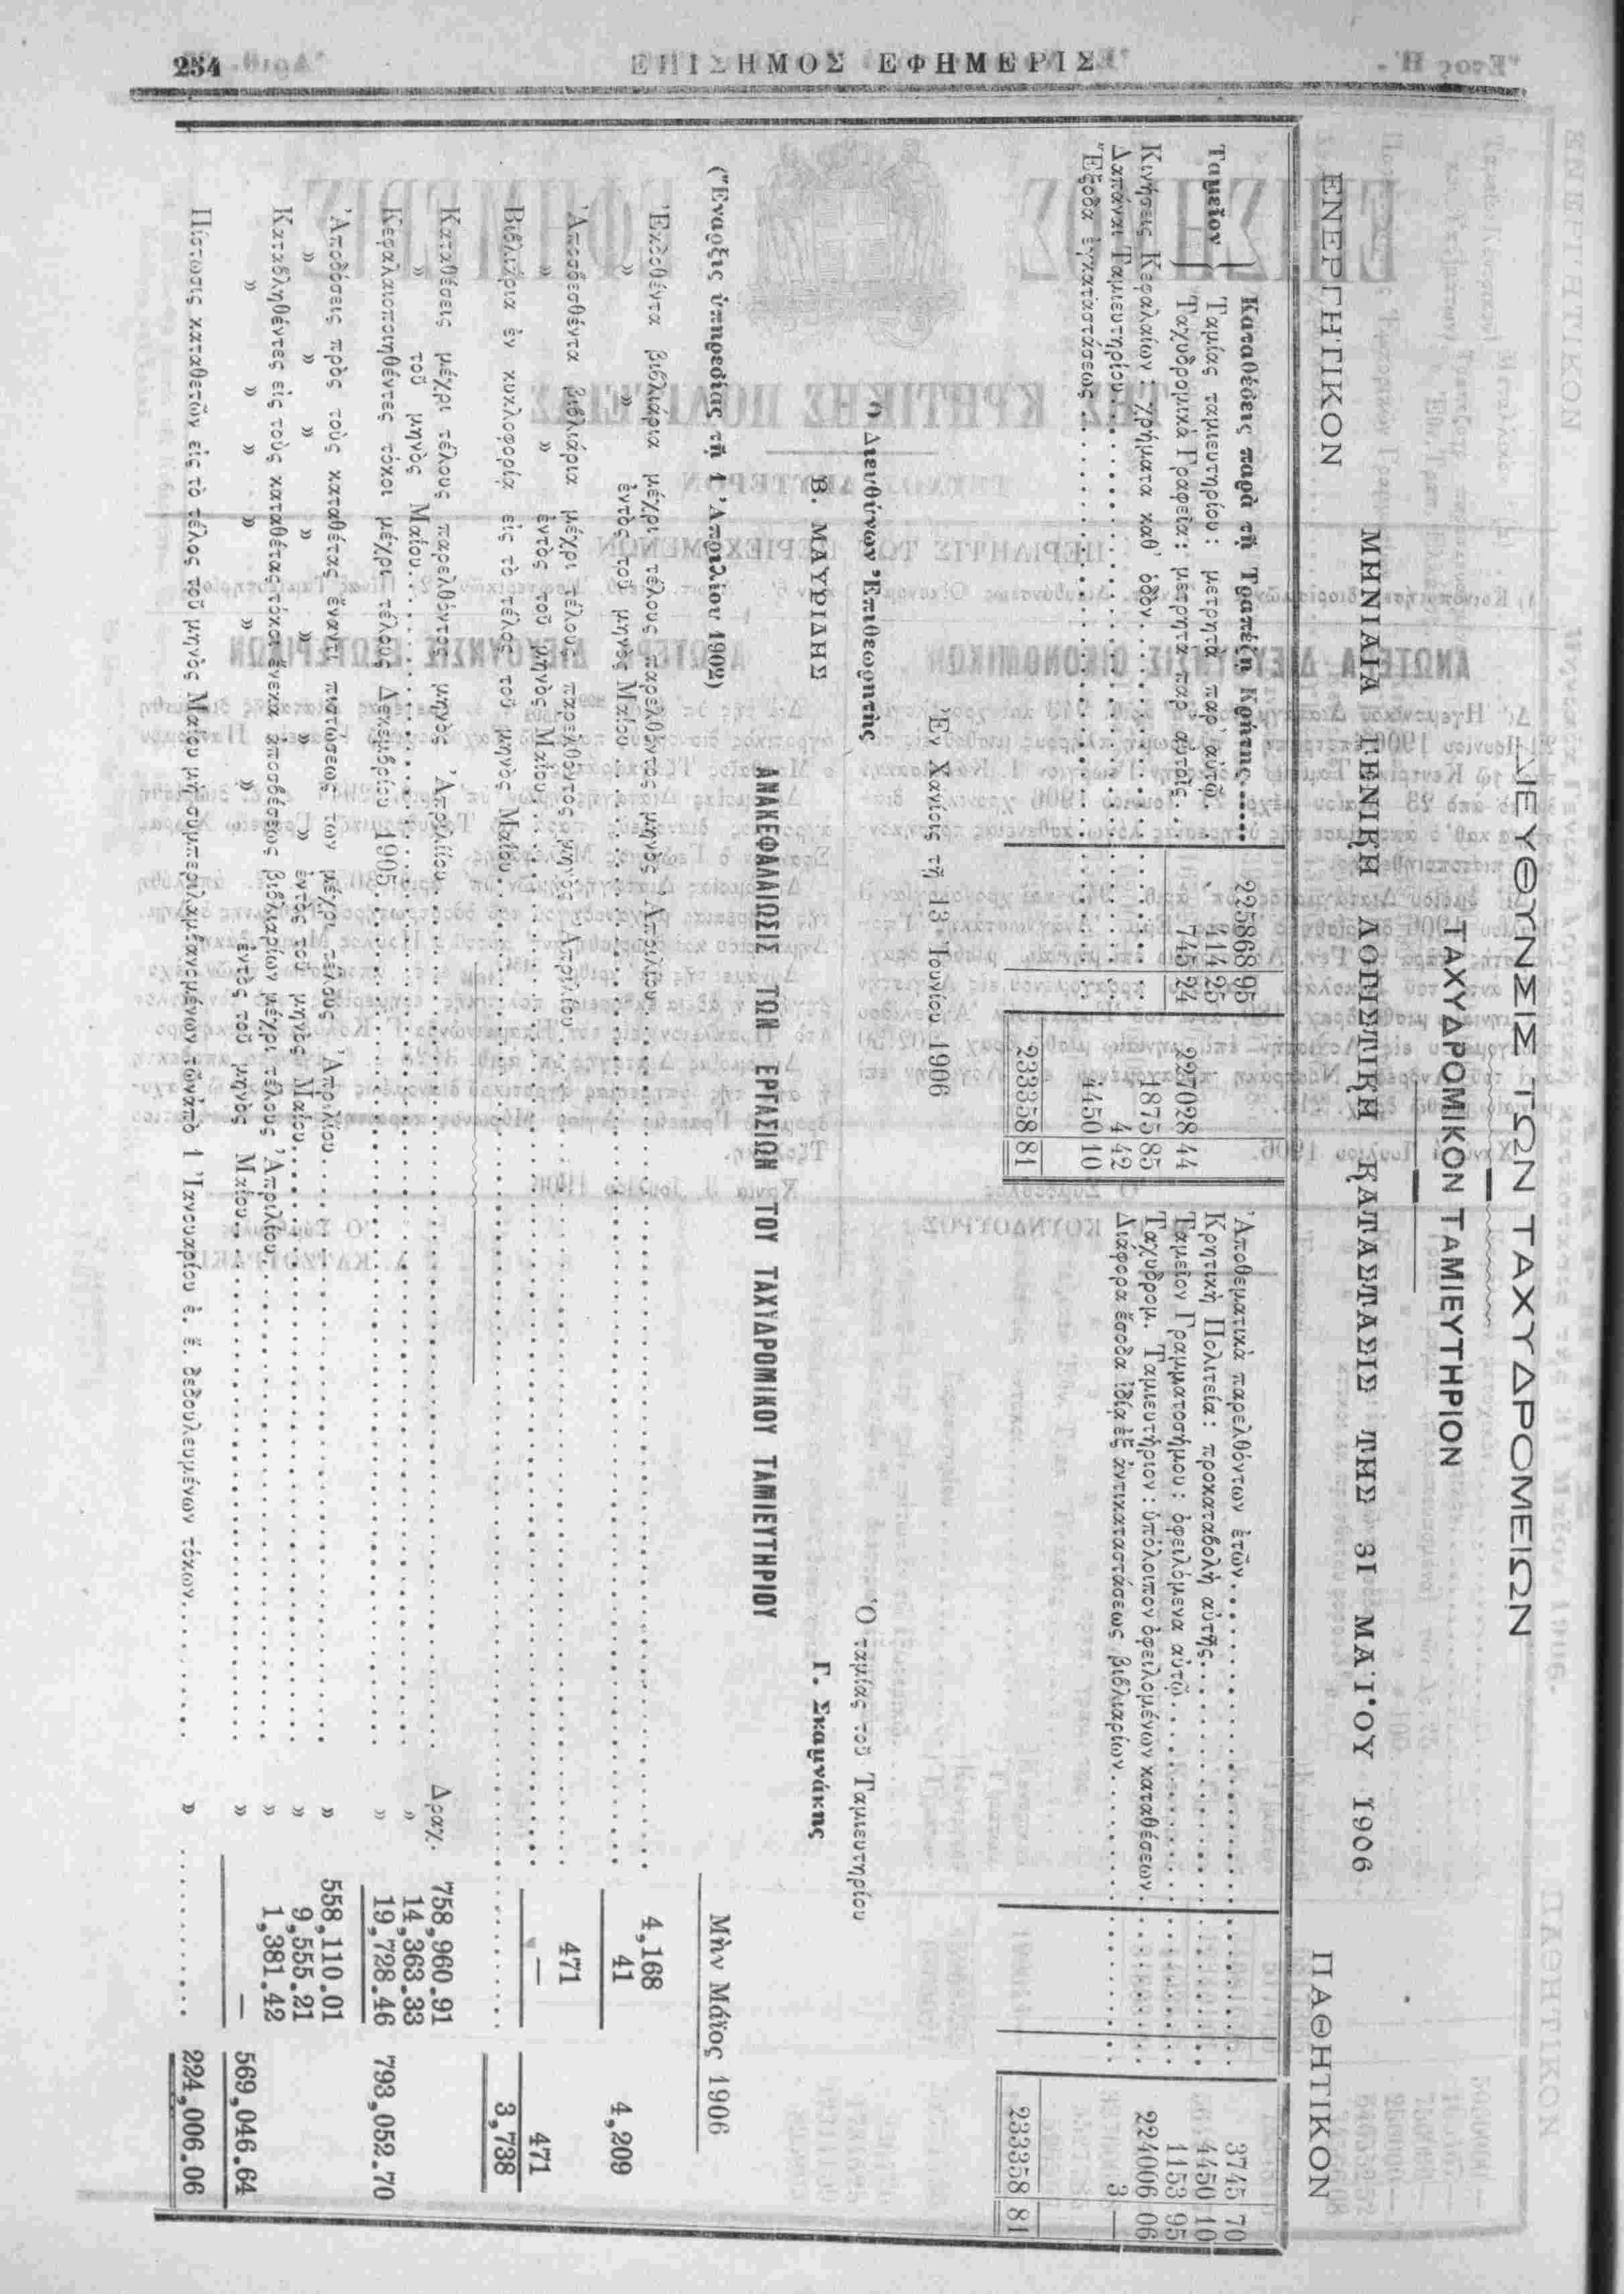 254
ΕΠΙΣΗΜΟΣ ΕΦΗΜΕΡΙΣ
ΔΙΕΥΘΥΝΣΙΣ ΤΩΝ ΤΑΧΥΔΡΟΜΕΙΩΝ
ΤΑΧΥΔΡΟΜΙΚΟΝ ΤΑΜΙΕΥΤΗΡΙΟΝ
ΜΗΝΙΑΙΑ ΓΕΝΙΚΗ ΛΟΓΙΣΤΙΚΗ ΚΑΤΑΣΤΑΣΙΣ ΤΗΣ 31 ΜΑ·Ι·ΟΥ 1906
ΕΝΕΡΓΗΤΙΚΟΝ
Καταθέσεις παρὰ τῇ Τραπέζῃ Κρήτης...... 225868 95
Ταμεῖον { Ταμίας ταμιευτηρίου: μετρητὰ παρ' αὐτῷ. . 414 25
Ταχυδρομικά Γραφεῖα: μετρητὰ παρ' αὐτοῖς. . . 745 24 227028 44
Κινήσεις Κεφαλαίων: Χρήματα καθ' ὁδόν. . . . . . . . . 1875 85
Δαπάναι Ταμιευτηρίου. . . . . . . . . . . . . 4 42
Ἔξοδα ἐγκαταστάσεως . . . . . . . . . . . . . 4450 10
233358 81
ΠΑΘΗΤΙΚΟΝ
Ἀποθεματικὰ παρελθόντων ἐτῶν. . . . . . . . . . . . 3745 70
Κρητικὴ Πολιτεία: προκαταβολὴ αὐτῆς. . . . . . . . . . 4450 10
Ταμεῖον Γραμματοσήμου: ὀφειλόμενα αὐτῷ. . . . . . . . . 1153 95
Ταχυδρομ. Ταμιευτήριον: ὑπόλοιπον ὀφειλομένων καταθέσεων. . . . 224006 06
Διάφορα ἔσοδα ἰδίᾳ ἐξ ἀντικαταστάσεως βιβλιαρίων. . . . . . . 3 —
233358 81
Ἐν Χανίοις τῇ 13 Ἰουνίου 1906
Ὁ Διευθύνων Ἐπιθεωρητὴς
Β. ΜΑΥΡΙΔΗΣ
Ὁ ταμίας τοῦ Ταμιευτηρίου
Γ. Σκαμνάκης
ΑΝΑΚΕΦΑΛΑΙΩΣΙΣ ΤΩΝ ΕΡΓΑΣΙΩΝ ΤΟΥ ΤΑΧΥΔΡΟΜΙΚΟΥ ΤΑΜΙΕΥΤΗΡΙΟΥ
(Ἔναρξις ὑπηρεσίας τῇ 1 Ἀπριλίου 1902)
Μὴν Μάϊος 1906
Ἐκδοθέντα βιβλιάρια μέχρι τέλους παρελθόντος μηνὸς Ἀπριλίου. . . . . . . . 4,168
» » ἐντὸς τοῦ μηνὸς Μαΐου. . . . . . . . 41 4,209
Ἀποσβεσθέντα βιβλιάρια μέχρι τέλους παρελθόντος μηνὸς Ἀπριλίου. . . . . . . . 471
» » ἐντὸς τοῦ μηνὸς Μαΐου. . . . . . . . — 471
Βιβλιάρια ἐν κυκλοφορίᾳ εἰς τὸ τέλος τοῦ μηνὸς Μαΐου. . . . . . . . 3,738
Καταθέσεις μέχρι τέλους παρελθόντος μηνὸς Ἀπριλίου. . . . . . . . Δραχ. 758,960.91
» τοῦ μηνὸς Μαΐου. . . . . . . . » 14,363.33
Κεφαλαιοποιηθέντες τόκοι μέχρι τέλους Δεκεμβρίου 1905. . . . . . . . » 19,728.46 793,052.70
Ἀποδόσεις πρὸς τοὺς καταθέτας ἔναντι πιστώσεως των μέχρι τέλους Ἀπριλίου. . . . . . . . » 558,110.01
» » » » » » » ἐντὸς τοῦ μηνὸς Μαΐου. . . . . . . . » 9,555.21
Καταβληθέντες εἰς τοὺς καταθέτας τόκοι ἕνεκα ἀποσβέσεως βιβλιαρίων μέχρι τέλους Ἀπριλίου. . . . . . . . » 1,381.42
» » » » » » ἐντὸς τοῦ μηνὸς Μαΐου. . . . . . . . » — 569,046.64
Πίστωσις καταθετῶν εἰς τὸ τέλος τοῦ μηνὸς Μαΐου μὴ συμπεριλαμβανομένων τῶν ἀπὸ 1 Ἰανουαρίου ἐ. ἔ. δεδουλευμένων τόκων. . . . . . . . » . . . . . . . . 224,006.06